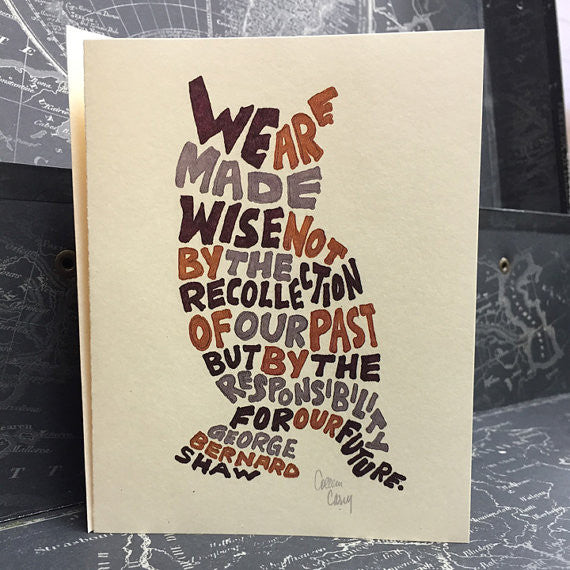 WE ARE
MADE
WISE NOT
BY THE
RECOLLECTION
OF OUR PAST
BUT BY THE
RESPONSIBILITY
FOR OUR FUTURE.
GEORGE
BERNARD
SHAW